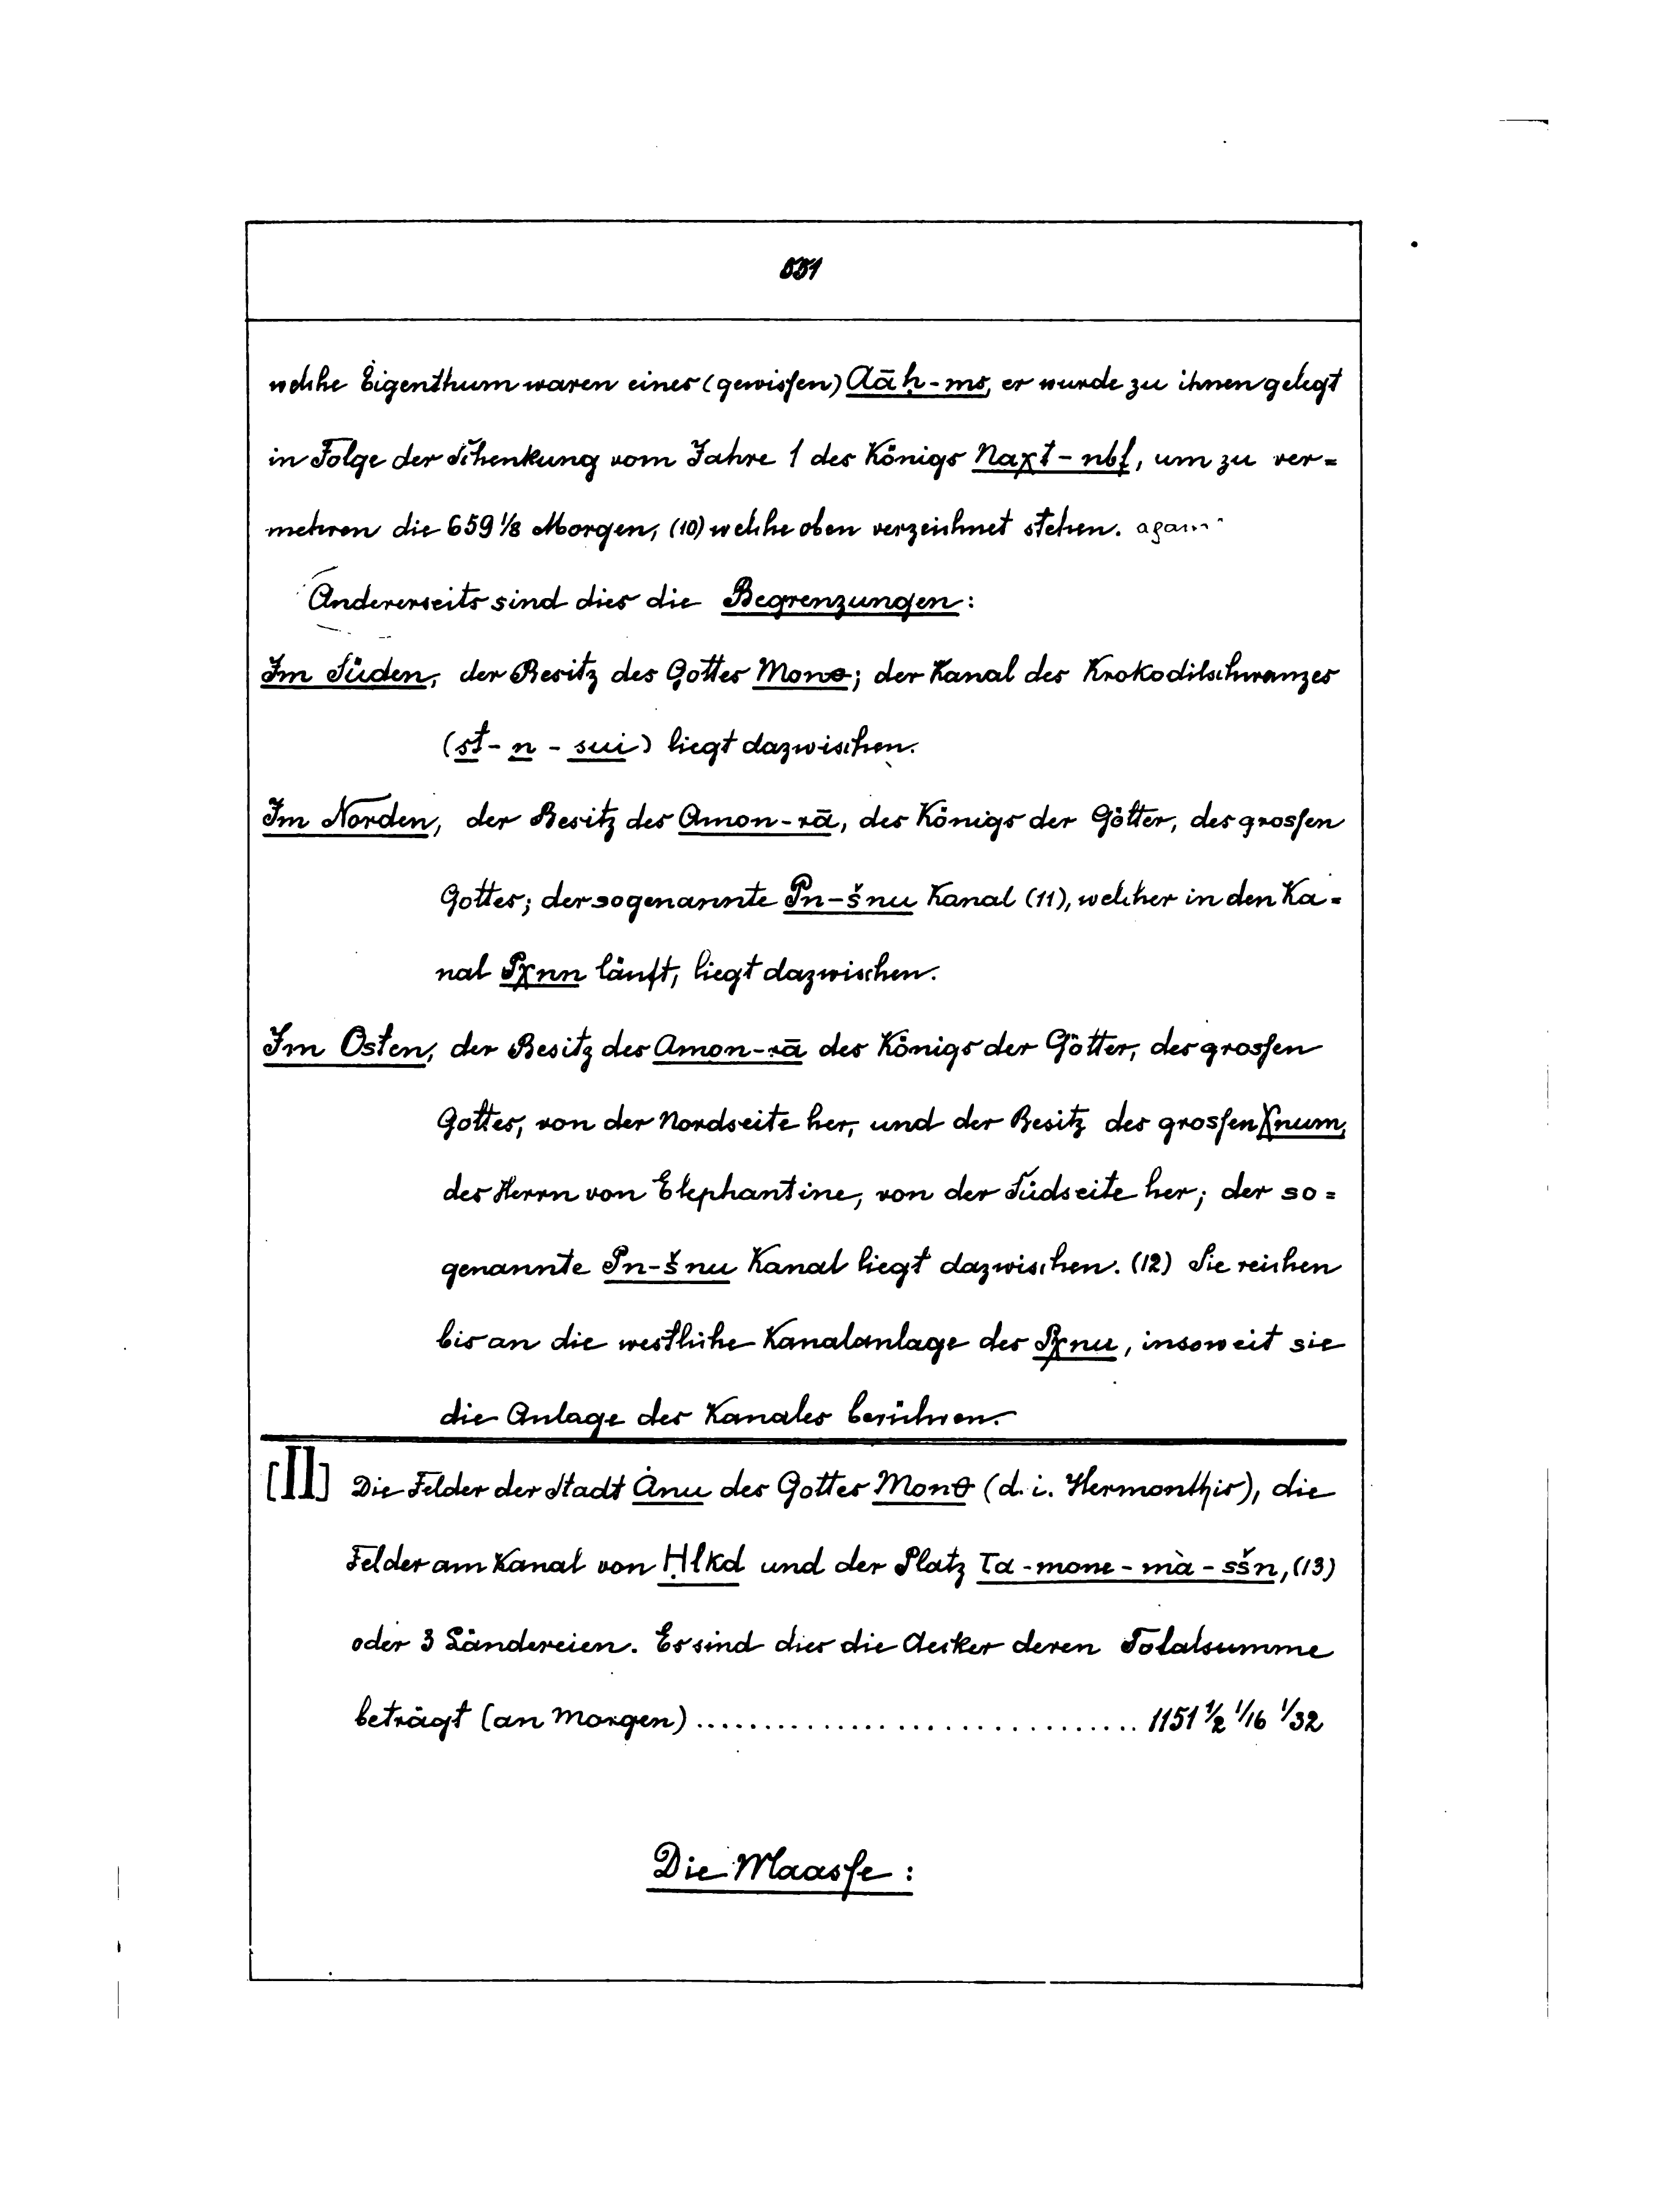 551
welche Eigenthum waren eines (gewissen) Aāḥ-ms, er wurde zu ihnen gelegt
in Folge der Schenkung vom Jahre 1 des Königs Naχt-nbf, um zu ver=
mehren die 659 1/8 Morgen, (10) welche oben verzeichnet stehen.
Andererseits sind dies die Begrenzungen:
Im Süden, der Besitz des Gottes Monθ; der Kanal des Krokodilschwanzes
(st-n-sui) liegt dazwischen.
Im Norden, der Besitz des Amon-rā, des Königs der Götter, des grossen
Gottes; der sogenannte Pn-šnu Kanal (11), welcher in den Ka=
nal Pχnn läuft, liegt dazwischen.
Im Osten, der Besitz des Amon-rā des Königs der Götter, des grossen
Gottes, von der Nordseite her, und der Besitz des grossen Xnum,
des Herrn von Elephantine, von der Südseite her; der so=
genannte Pn-šnu Kanal liegt dazwischen. (12) Sie reichen
bis an die westliche Kanalanlage des Pχnu, insoweit sie
die Anlage des Kanales berühren.
[II] Die Felder der Stadt Ȧnu des Gottes Monθ (d. i. Hermonthis), die
Felder am Kanal von Ḥlkd und der Platz Ta-mone-mà-sšn, (13)
oder 3 Ländereien. Es sind dies die Aecker deren Totalsumme
beträgt (an Morgen) ................................ 1151 1/2 1/16 1/32
Die Maasse: